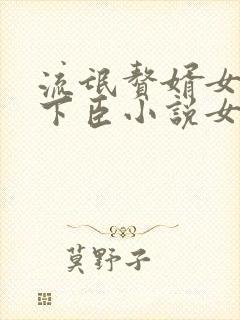 流氓赘婿女
下臣小说女
莫野子